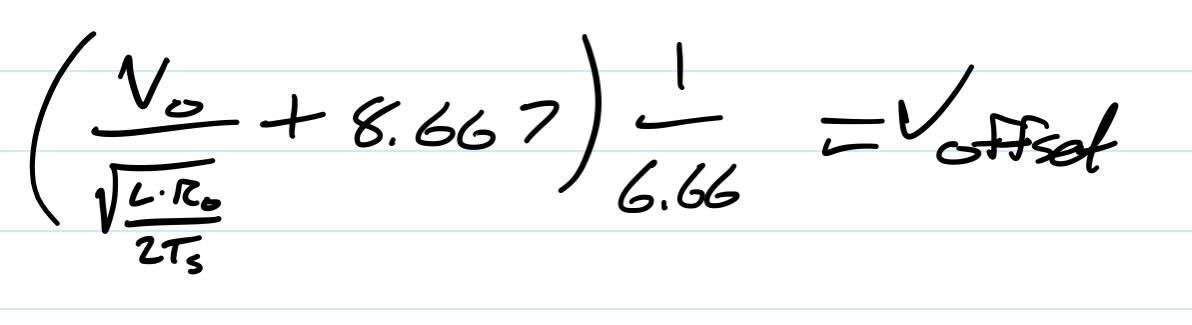 $\left(\frac{V_o}{\sqrt{\frac{L \cdot R_o}{2T_s}}} + 8.667\right)\frac{1}{6.66} = V_{offset}$